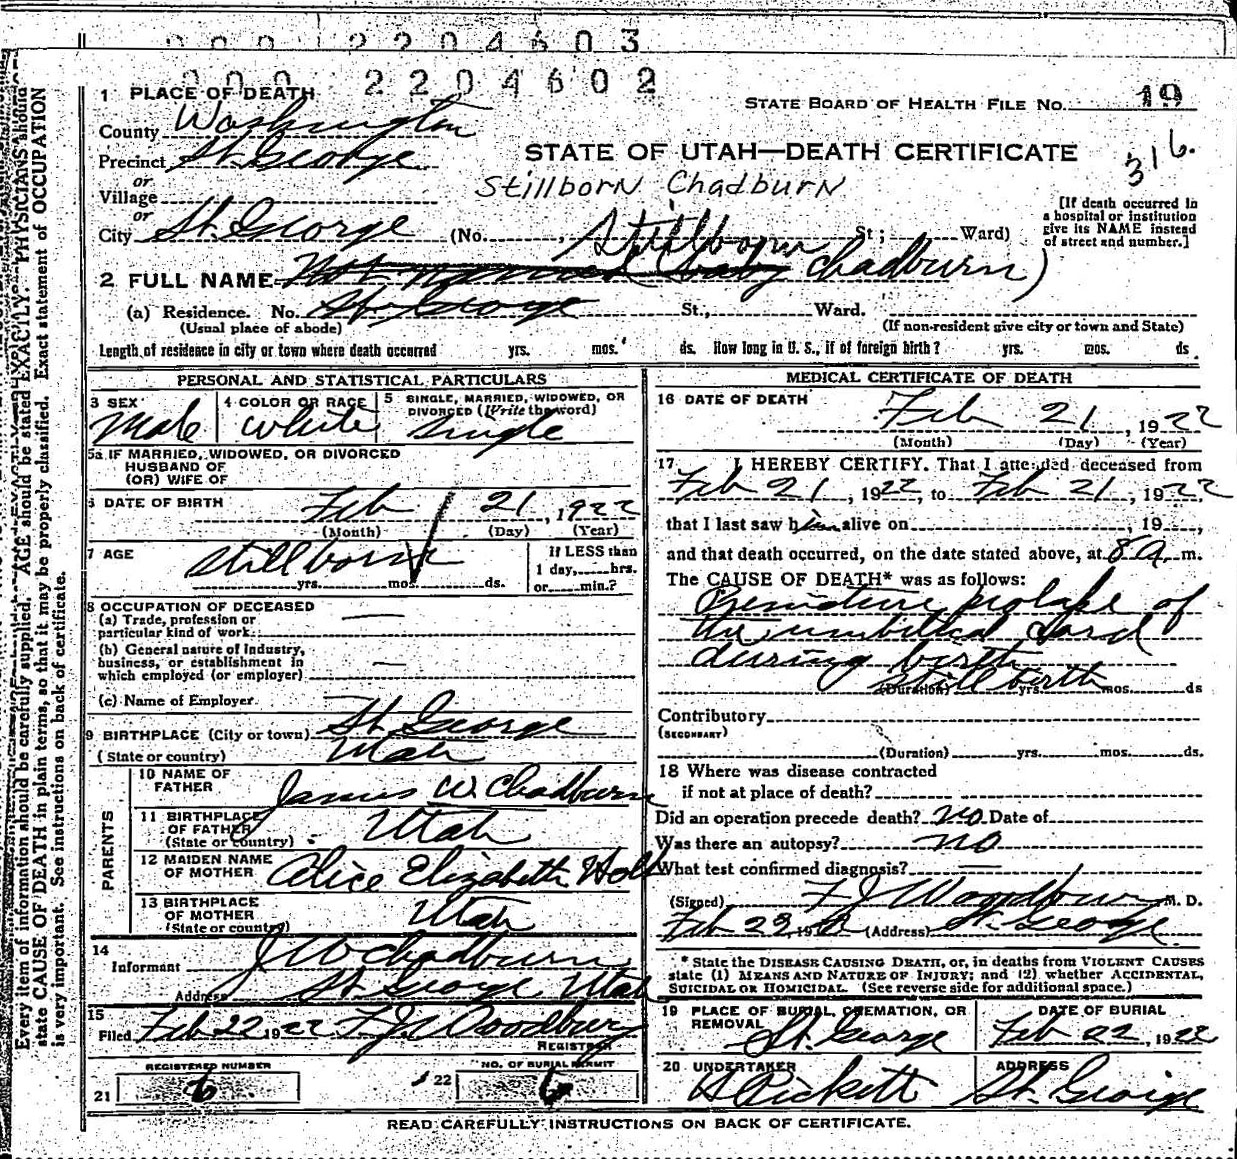 000 2204603
000 2204602
1 PLACE OF DEATH
STATE BOARD OF HEALTH FILE No. 19
County Washington
Precinct St. George
STATE OF UTAH—DEATH CERTIFICATE
316.
or
Stillborn Chadburn
Village
or
City St. George (No. , St; Ward)
[If death occurred in
a hospital or institution
give its NAME instead
of street and number.]
Stillborn
2 FULL NAME Not named (baby Chadburn)
(a) Residence. No. St. George St., Ward.
(Usual place of abode) (If non-resident give city or town and State)
Length of residence in city or town where death occurred yrs. mos. ds. How long in U. S., if of foreign birth? yrs. mos. ds
PERSONAL AND STATISTICAL PARTICULARS
3 SEX 4 COLOR OR RACE 5 SINGLE, MARRIED, WIDOWED, OR
DIVORCED (Write the word)
Male White Single
5a IF MARRIED, WIDOWED, OR DIVORCED
HUSBAND OF
(OR) WIFE OF
6 DATE OF BIRTH Feb 21, 1922
(Month) (Day) (Year)
7 AGE Stillborn If LESS than
1 day, hrs.
yrs. mos. ds. or min.?
8 OCCUPATION OF DECEASED
(a) Trade, profession or
particular kind of work: —
(b) General nature of industry,
business, or establishment in
which employed (or employer) —
(c) Name of Employer
9 BIRTHPLACE (City or town) St. George
(State or country) Utah
PARENTS
10 NAME OF
FATHER James W. Chadburn
11 BIRTHPLACE
OF FATHER
(State or country) Utah
12 MAIDEN NAME
OF MOTHER Alice Elizabeth Holt
13 BIRTHPLACE
OF MOTHER
(State or country) Utah
14
Informant J W Chadburn
Address St. George Utah
15
Filed Feb 22 1922 F. J. Woodbury
REGISTRAR
REGISTERED NUMBER NO. OF BURIAL PERMIT
21 6 22 6
MEDICAL CERTIFICATE OF DEATH
16 DATE OF DEATH
Feb 21, 1922
(Month) (Day) (Year)
17 I HEREBY CERTIFY. That I attended deceased from
Feb 21, 1922, to Feb 21, 1922,
that I last saw him alive on , 19 ,
and that death occurred, on the date stated above, at 8 a. m.
The CAUSE OF DEATH* was as follows:
Premature prolapse of
the umbilical cord
during birth
Stillbirth
(Duration) yrs. mos. ds
Contributory
(SECONDARY)
(Duration) yrs. mos. ds.
18 Where was disease contracted
if not at place of death?
Did an operation precede death? no Date of
Was there an autopsy? no
What test confirmed diagnosis? —
(Signed) F J Woodbury M. D.
Feb 22, 19 (Address) St. George
* State the DISEASE CAUSING DEATH, or, in deaths from VIOLENT CAUSES
state (1) MEANS AND NATURE OF INJURY; and (2) whether ACCIDENTAL,
SUICIDAL OR HOMICIDAL. (See reverse side for additional space.)
19 PLACE OF BURIAL, CREMATION, OR
REMOVAL DATE OF BURIAL
St. George Feb 22, 1922
20 UNDERTAKER ADDRESS
Pickett St. George
READ CAREFULLY INSTRUCTIONS ON BACK OF CERTIFICATE.
Every item of information should be carefully supplied. AGE should be stated EXACTLY. PHYSICIANS should
state CAUSE OF DEATH in plain terms, so that it may be properly classified. Exact statement of OCCUPATION
is very important. See instructions on back of certificate.